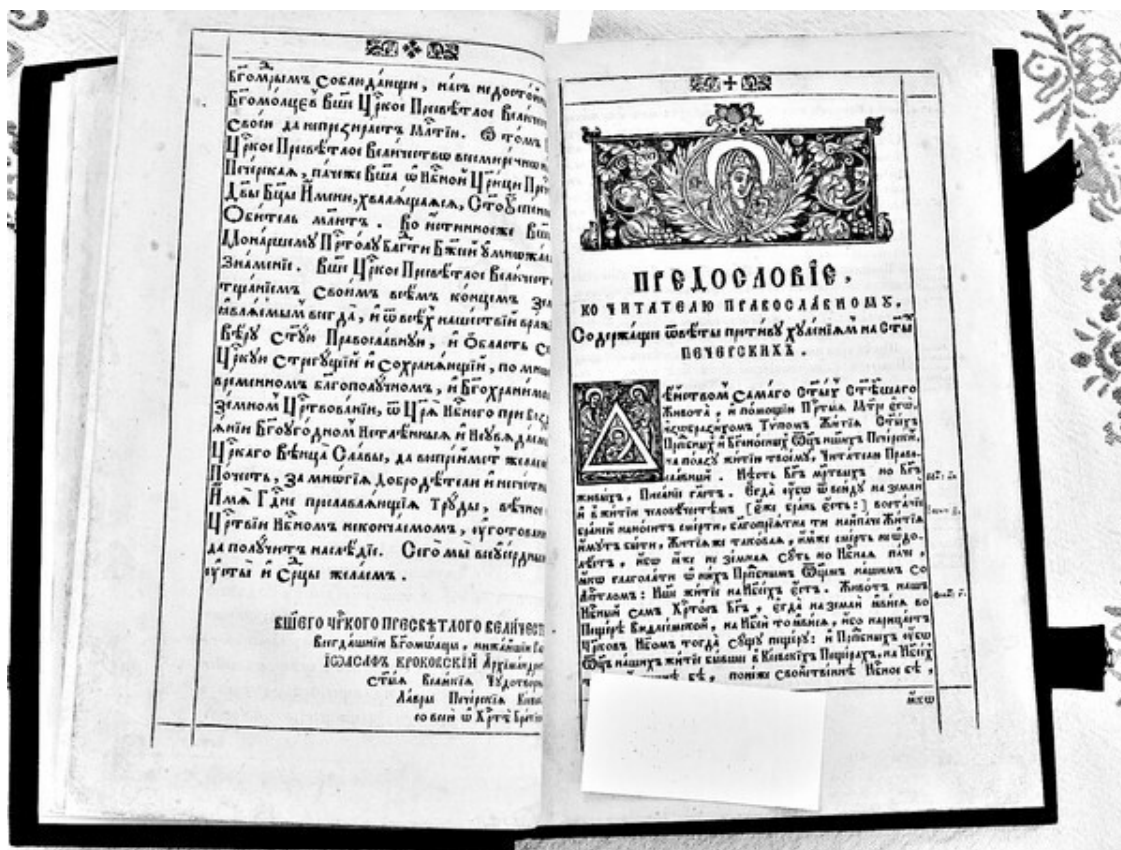 Бг҃омрⷣымъ Соблюда́ющи, на́съ недосто́йны
Бг҃омо́лцев Ва́ше Цр҃ко́е Пресвѣ́тлое Вели́чест
Своеѝ да непрезира́етъ Млⷭ҇ти. Ѿ то́мъ
Цр҃ко́е Пресвѣ́тлое Вели́чество
Пече́рскаѧ, па́чеже Ва́ша ѿ Нбⷭ҇ной Цр҃и́ци Пре
Дв҃ы Бцⷣы И́мени, хвалѧ́щаѧсѧ, Ст҃оꙋспе́нїѧ
Оби́тель мл҃итъ. Во и́стинноеже Ва́ш
Мона́ршемꙋ Прⷭ҇то́лꙋ Блг҃ти Бж҃еѝ ᲂу҆множа́
Зна́менїе. Ва́ше Цр҃ко́е Пресвѣ́тлое Вели́чест
Свои́мъ всѣ́мъ конце́мъ Зе
ꙗ҆влѧ́емымъ всегда̀, и ѿ всѣ́хъ наше́ствїй вра́ж
Вѣ́рꙋ Ст҃ꙋ́ю Правосла́внꙋю, и О́бласть С
Цр҃кꙋ́ю Стрегꙋ́щїй и Сохранѧ́ющїй, по мно
вре́менномъ благополꙋ́чномъ, и Бг҃охрани́мо
Земно́мъ Цр҃твова́нїи, ѿ Цр҃ѧ̀ Нбⷭ҇наго при
Бг҃оꙋго́дномъ Нетлѣ́нныѧ и Неꙋвѧда́е
Цр҃каго Вѣнца̀ Сла́вы, да воспрїи́метъ жела́е
По́честь, за мнѡ́гїѧ Добродѣ́тели и несче́тны
И́мѧ Гдⷭ҇не прославлѧ́ющїѧ Трꙋды̀, вѣ́чное
Цр҃твїи Нбⷭ҇номъ некончае́момъ, ᲂу҆гото́ван
да полꙋ́читъ наслѣ́дїе. Сегѡ̀ мы̀ всеꙋсе́рдны
ᲂу҆сты̀ и Срⷣцы жела́емъ.
ВШ҃ЕГО ЦР҃КОГО ПРЕСВѢТЛОГО ВЕЛИЧЕСТ
Всегда́шнїи Бг҃омо́лци, нижа́йшїи
ІѠАСАФЪ КРОКОВСКІЙ Архїмандри
Ст҃ы́ѧ Вели́кїѧ Чꙋдотво́р
Ла́вры Пече́рскїѧ Кїев
со все́ю ѿ Хрⷭ҇тѣ̀ Бра́тїею
ПРЕДОСЛОВІЕ,
КО ЧИТАТЕЛЮ ПРАВОСЛА́ВНОМУ,
Содержа́щее ѿвѣ́ты проти́вꙋ хꙋле́нїѧмъ на Ст҃ы́хъ
ПЕЧЕРСКИХЪ.
ДѢйствомъ Сама́го Ст҃ы́хъ Ст҃ѣ́йшаго
Живота̀, и по́мощїю Прⷭ҇ты́ѧ Мт҃ре є҆гѡ̀.
изѡбрази́хомъ Тѵ́помъ Житїѧ̀ Ст҃ы́хъ
Прпⷣбныхъ и Бг҃оно́сныхъ Ѻц҃ъ на́шихъ Пече́рски,
на по́лзꙋ житїю̀ твоемꙋ̀, Чита́телю Право-
сла́вный. Нѣ́сть Бг҃ъ ме́ртвыхъ но Бг҃ъ
живы́хъ, Писа́нїе гл҃етъ. Є҆гда̀ ᲂу҆́бѡ ѿвсю́дꙋ на землѝ
и в житїѝ человѣ́честѣмъ [є҆́же бра́нь є҆́сть:] воста́нїе
бра́ней нано́ситъ сме́рти, благопрїѧ́тна ти наипа́че Житїѧ̀
и҆́мꙋтъ бы́ти, Житїѧ́ же такова́ѧ, и҆́мже сме́рть не ѡ҆до-
лѣ́етъ, и҆́бѡ и҆̀же не земна́ѧ сꙋ́ть но Нбⷭ҇наѧ па́че,
ꙗ҆́кѡ глаго́лати ѿ ни́хъ Прпⷣбнымъ Ѻц҃е́мъ на́шимъ со
Апⷭ҇ломъ: На́ше житїѐ на Нб҃сѣ́хъ є҆́сть. Живо́тъ на́шъ
Нбⷭ҇ный Са́мъ Хрⷭ҇то́съ Бг҃ъ, є҆гда̀ на землѝ ꙗ҆ви́сѧ во
Пеще́рѣ Виѳлее́мской, на Нб҃сѝ то ꙗ҆ви́сѧ, и҆́бо нарица́етъ
Цр҃ковь Нб҃омъ тогда̀ сꙋ́щꙋ пеще́рꙋ: и Прпⷣбныхъ ᲂу҆́бѡ
Ѻц҃ъ на́шихъ житїѐ бы́вше в Кїевскихъ Пеще́рахъ, на Нб҃сѣ́хъ
бѣ̀, поне́же сво́йственнѣ Нбⷭ҇ное бѣ̀,
ꙗ҆́кѡ